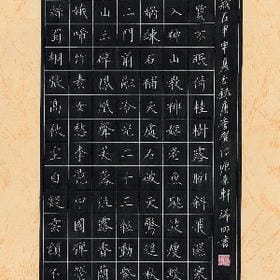 歲在甲申夏錄唐李賀詩於軒書
質不眠倚桂樹露腳斜飛濕寒
入神山教神嫗老魚跳波瘦蛟
媧煉石補天處石破天驚逗秋
二門前融冷光二十三絲動紫
山玉碎鳳凰叫芙蓉泣露香蘭
娥啼竹素女愁李憑中國彈箜
絲蜀桐張高秋空白凝雲頹不